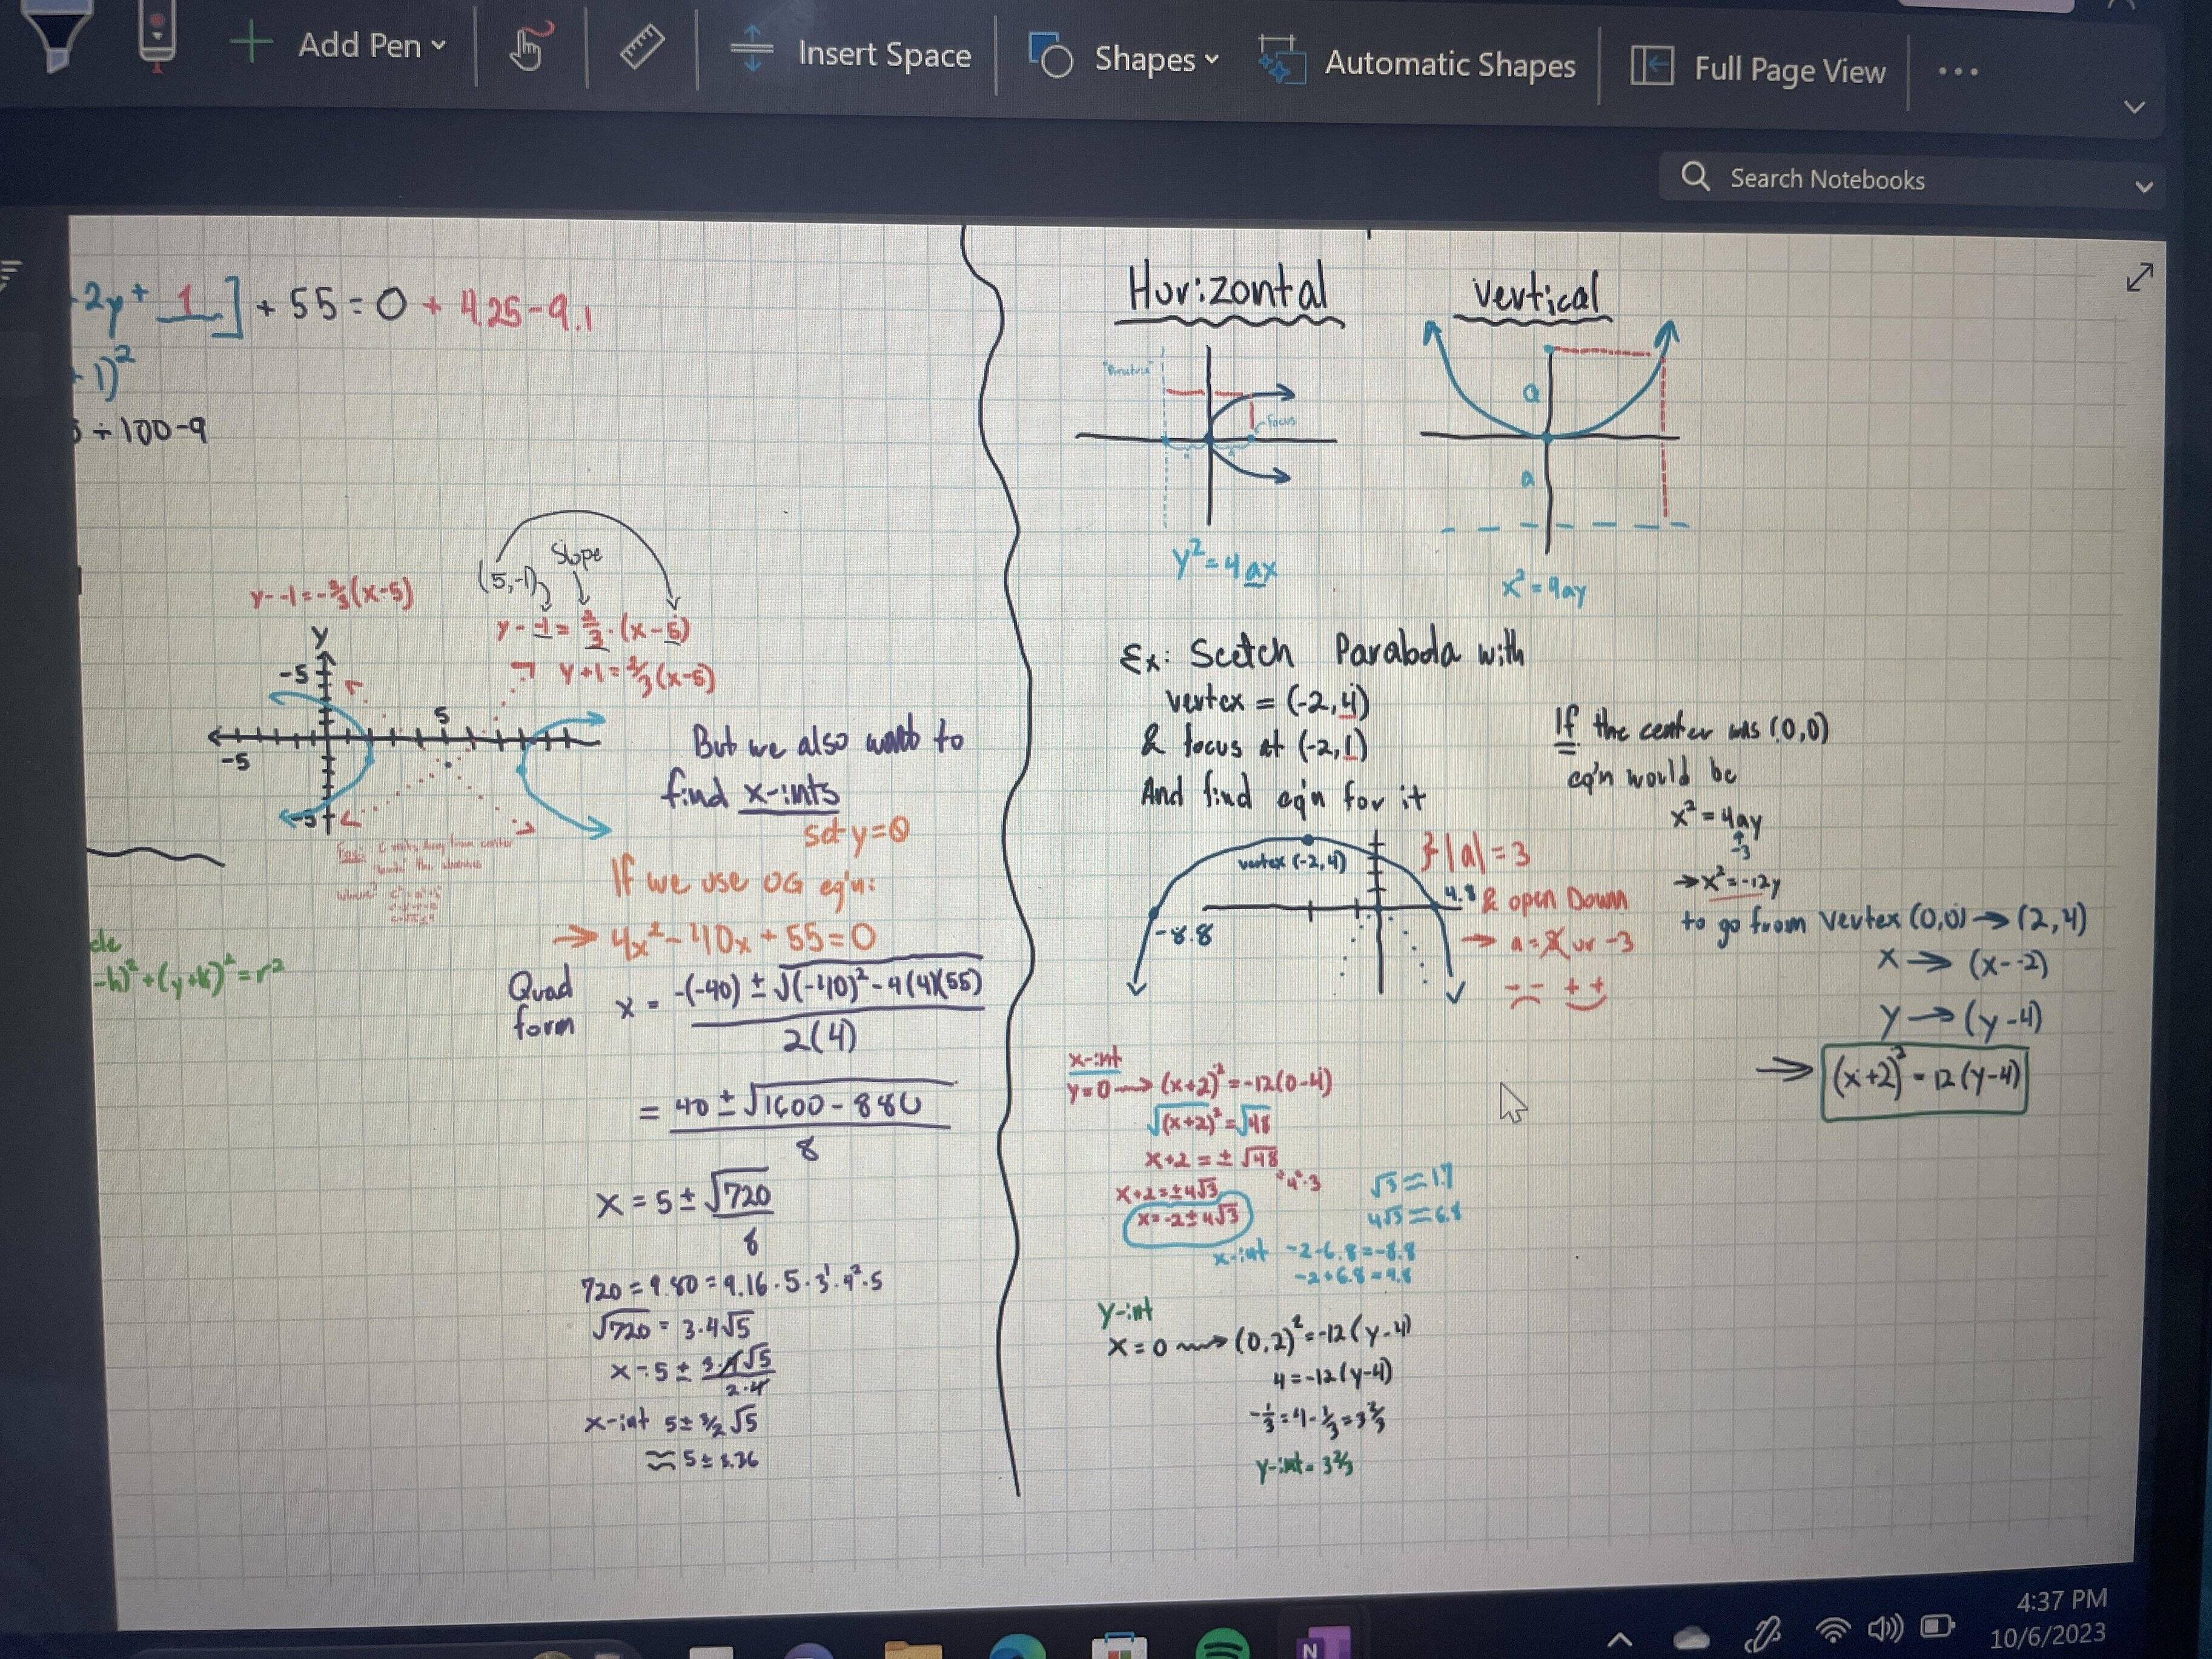 Add Pen
Insert Space
Shapes
Automatic Shapes
Full Page View
...
Search Notebooks
2y + 1] + 55 = 0 + 4.25 - 9.1
1)²
+ 100 - 9
y - -1 = -2/3(x-5)
(5,-1)
Slope
y - -1 = 2/3 · (x - 5)
y + 1 = 2/3(x-5)
y
-5
5
-5
-5
But we also want to
find x-ints
set y=0
If we use OG eq'n:
→ 4x² - 40x + 55 = 0
Quad
form
x = -(-40) ± √(-40)² - 4(4)(55)
2(4)
= 40 ± √1600 - 880
8
x = 5 ± √720
8
720 = 9·80 = 9·16·5·3²·4²·5
√720 = 3·4√5
x = 5 ± 3·4√5
2·4
x-int 5 ± 3/2 √5
≈ 5 ± 3.36
c units away from center
where?
-h)² + (y+k)² = r²
Horizontal
"Directrix"
Focus
y² = 4ax
Vertical
a
a
x² = 4ay
Ex: Scetch Parabola with
vertex = (-2,4)
& focus at (-2,1)
And find eq'n for it
vertex (-2,4)
4.8
-8.8
} |a| = 3
& open Down
→ a = 3 or -3
- - + +
If the center was (0,0)
eq'n would be
x² = 4ay
-3
→ x² = -12y
to go from vertex (0,0) → (2,4)
x → (x--2)
y → (y-4)
⇒ (x+2)² = 12(y-4)
x-int
y=0 → (x+2)² = -12(0-4)
√(x+2)² = √48
x+2 = ± √48
4²·3
x+2 = ±4√3
x = -2 ± 4√3
√3 ≈ 1.7
4√3 ≈ 6.8
x-int -2-6.8 = -8.8
-2+6.8 = 4.8
y-int
x = 0 → (0.2)² = -12(y-4)
4 = -12(y-4)
-1/3 = 4 - 1/3 = 3 2/3
y-int = 3 2/3
4:37 PM
10/6/2023